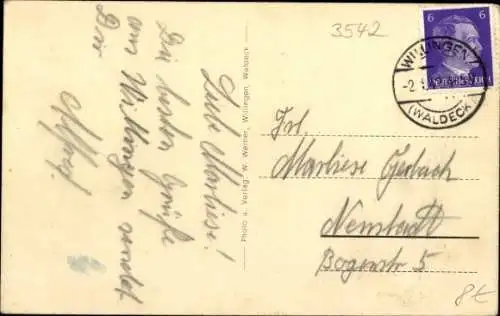 3542
6 6
WILLINGEN
(WALDECK)
Liebe Marliese!
Die besten Grüße
aus Willingen sendet
Dir
Photo u. Verlag W. Werner, Willingen, Waldeck
Frl.
Marliese Gerbach
Neustadt
Bogenstr 5
8€